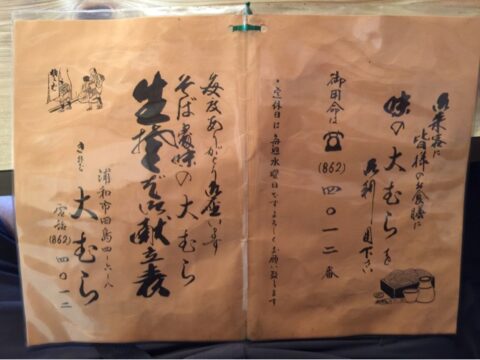 御来客に
皆様のお食膳に
味の大むらを
御利用下さい
御用命は☎(862)四〇一二番
・定休日は毎週水曜日ですよろしくお願い致します
毎度ありがとう御座います
そば最味の大むら
生そば御献立表
浦和市田島四ー六ー八
大むら
電話(862)四〇一二